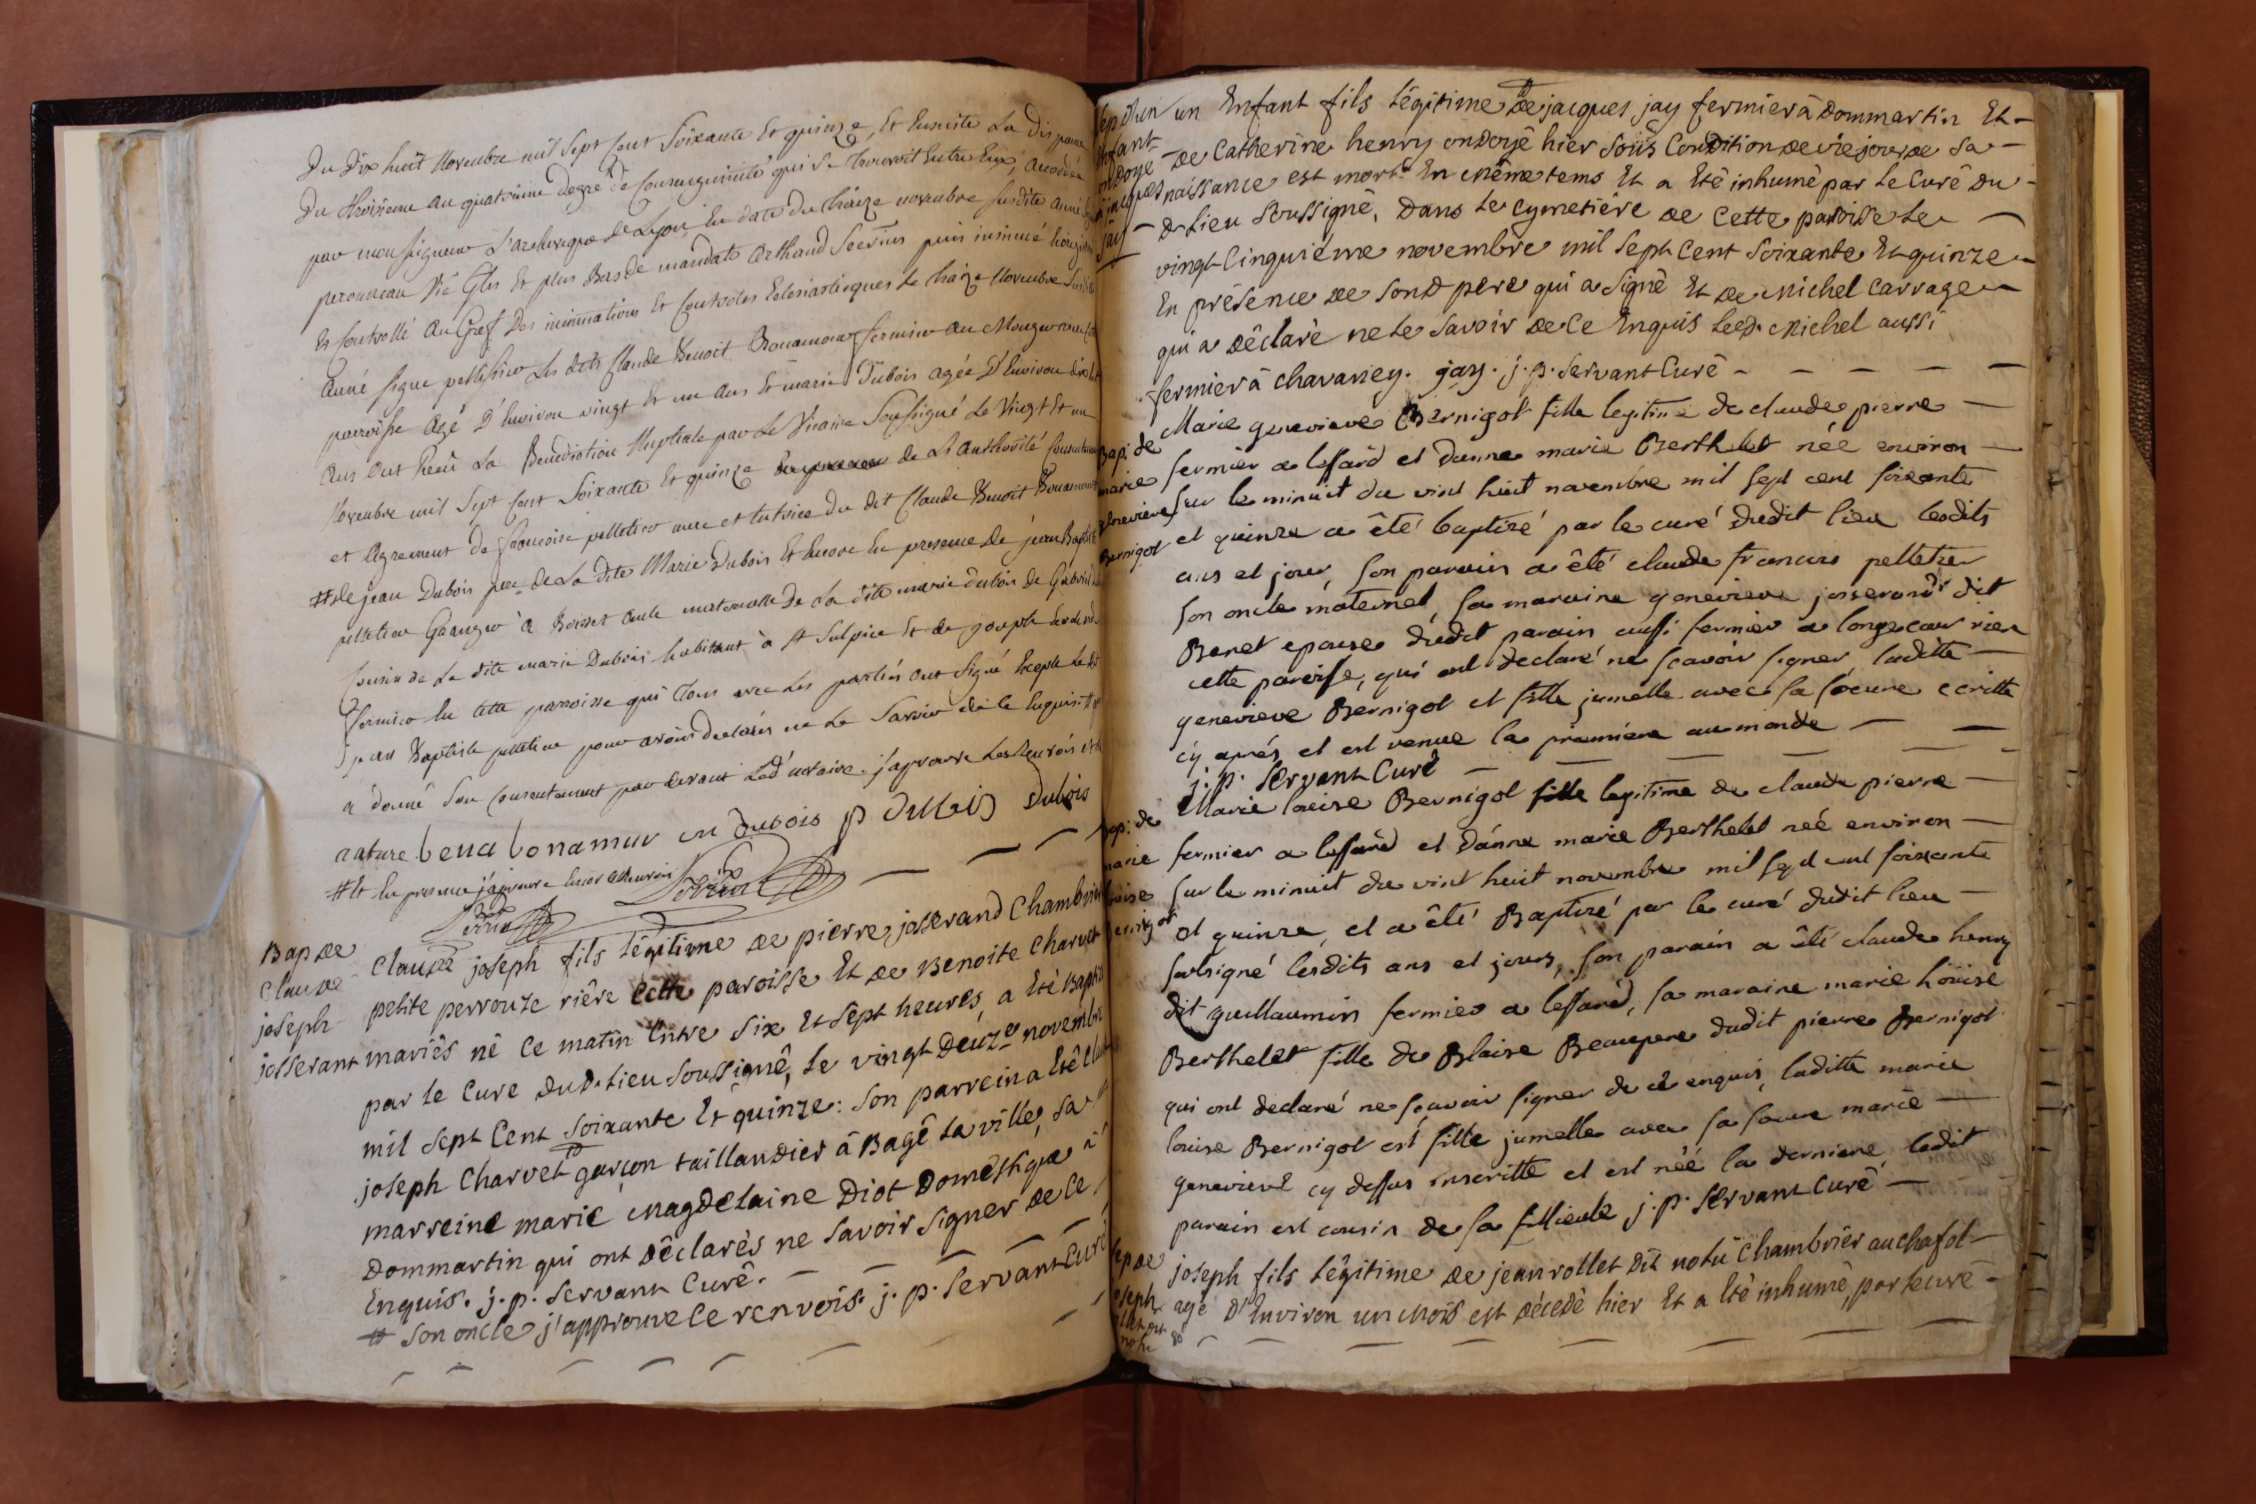 Du Dix huit Novembre mil Sept Cent Soixante Et quinze, Et Ensuite La dispense
Du Troisieme au quatrieme degré de Consanguinité qui se trouvoit Entre Eux, accordée
par monseigneur L'archeveque de Lyon, En date du treize novembre susdite année
Vic Gles Et plus Bas de mandato arthaud Secrius puis insinué
Et Controllé au Gref Des insinuations Et Controles Eclesiastiques Le treize Novembre Susdite
année signe pellissier Les dits Claude Benoit Bonamour fermier au
parroisse agé D'Environ vingt Et un ans Et marie Dubois agée D'Environ
ans ont Reçu La Benediction Nuptiale par Le Vicaire Soussigné Le Vingt Et un
Novembre mil Sept Cent Soixante Et quinze de L'authorité
et agrement de francoise pelletier mere et tutrice du dit Claude Benoit Bonamour
# de jean Dubois pere de La dite Marie Dubois Et Encore En presence de jean Baptiste
pelletier Granger à Boisset oncle maternelle de La dite marie dubois de Gabriel
Cousin de La dite marie Dubois habitant à St Sulpice Et de joseph
fermier En cette parroisse qui Tous avec Les parties ont Signé Excepté Le dit
jean Baptiste pelletier pour avoir declarés ne Le Savoir de ce Enquis
a donné Son Consentement par devant Led' notaire. j'aprouve Les Renvois
nature bena bonamur m dubois p dubois Dubois
# Et En presence j'aprouve Encor ce Renvoi
Bap de
Claude
joseph
josserant
Claude joseph fils légitime de pierre josserand Chambrier
petite perrouze riêre cette paroisse Et de Benoite Charvet
mariés né ce matin Entre six Et sept heures, a Eté Baptisé
par le Curé dud. lieu soussigné, le vingt deuze novembre
mil sept Cent soixante Et quinze: son parrein a Eté
joseph Charvet garçon taillandier à Bagé la ville, sa
marreine marie magdelaine Diot Domestique à
Dommartin qui ont déclarés ne savoir signer de ce
Enquis. j. p. servant Curé.
# son oncle j'approuve le renvois. j. p. servant Curé
Sep d'un
Enfant
ondoyé
jacques
jay
un Enfant fils légitime de jacques jay fermier à Dommartin Et
de Catherine henry ondoyé hier sous Condition de vie jour de sa
naissance est mort En même tems Et a Eté inhumé par le Curé du
d. lieu soussigné, dans le cymetiére de cette paroisse le
vingt Cinquiéme novembre mil sept cent soixante Et quinze
En présence de son d. pere qui a signé Et de michel Carrage
qui a déclaré ne le savoir de ce Enquis led. michel aussi
fermier à chavaney. jay. j. p. servant Curé
Bap: de
marie
Genevieve
Bernigot
Marie genevieve Bernigot fille legitime de claude pierre
fermier a lessard et danne marie Berthelet née environ
sur le minuit du vint huit novembre mil sept cent soixante
et quinze a êté baptizé par le curé dudit lieu lesdits
ans et jour, son parain a êté claude francois pelletier
son oncle maternel, sa maraine genevieve josserand dit
Benet epouse dudit parain aussi fermier a longecour rier
cette paroisse, qui ont declaré ne scavoir signer laditte
genevieve Bernigot et fille jumelle avec sa soeure ecritte
cy aprés et est venue la premiere au monde
j. p. servant Curé
Bap: de
marie
louise
Bernigot
Marie louise Bernigot fille legitime de claude pierre
fermier a lessard et danne marie Berthelet neé environ
sur le minuit du vint huit novembre mil sept cent soixante
et quinze, et a êté Baptizé par le curé dudit lieu
soussigné lesdits ans et jours, son parain a êté claude henry
dit guillaumin fermier a lessard, sa maraine marie louise
Berthelet fille de Blaise Beaupere dudit pierre Bernigot
qui ont declaré ne scavoir signer de ce enquis, laditte marie
louise Bernigot est fille jumelle avec sa soeure marie
genevieve cy dessus inscritte et est néé la derniere ledit
parain est cousin de sa fillieule j. p. servant Curé
Sep de
joseph
rollet dit
notu
joseph fils légitime de jean rollet dit notu Chambrier au chafol
agé d'Environ un mois est décedé hier Et a Eté inhumé par le curé